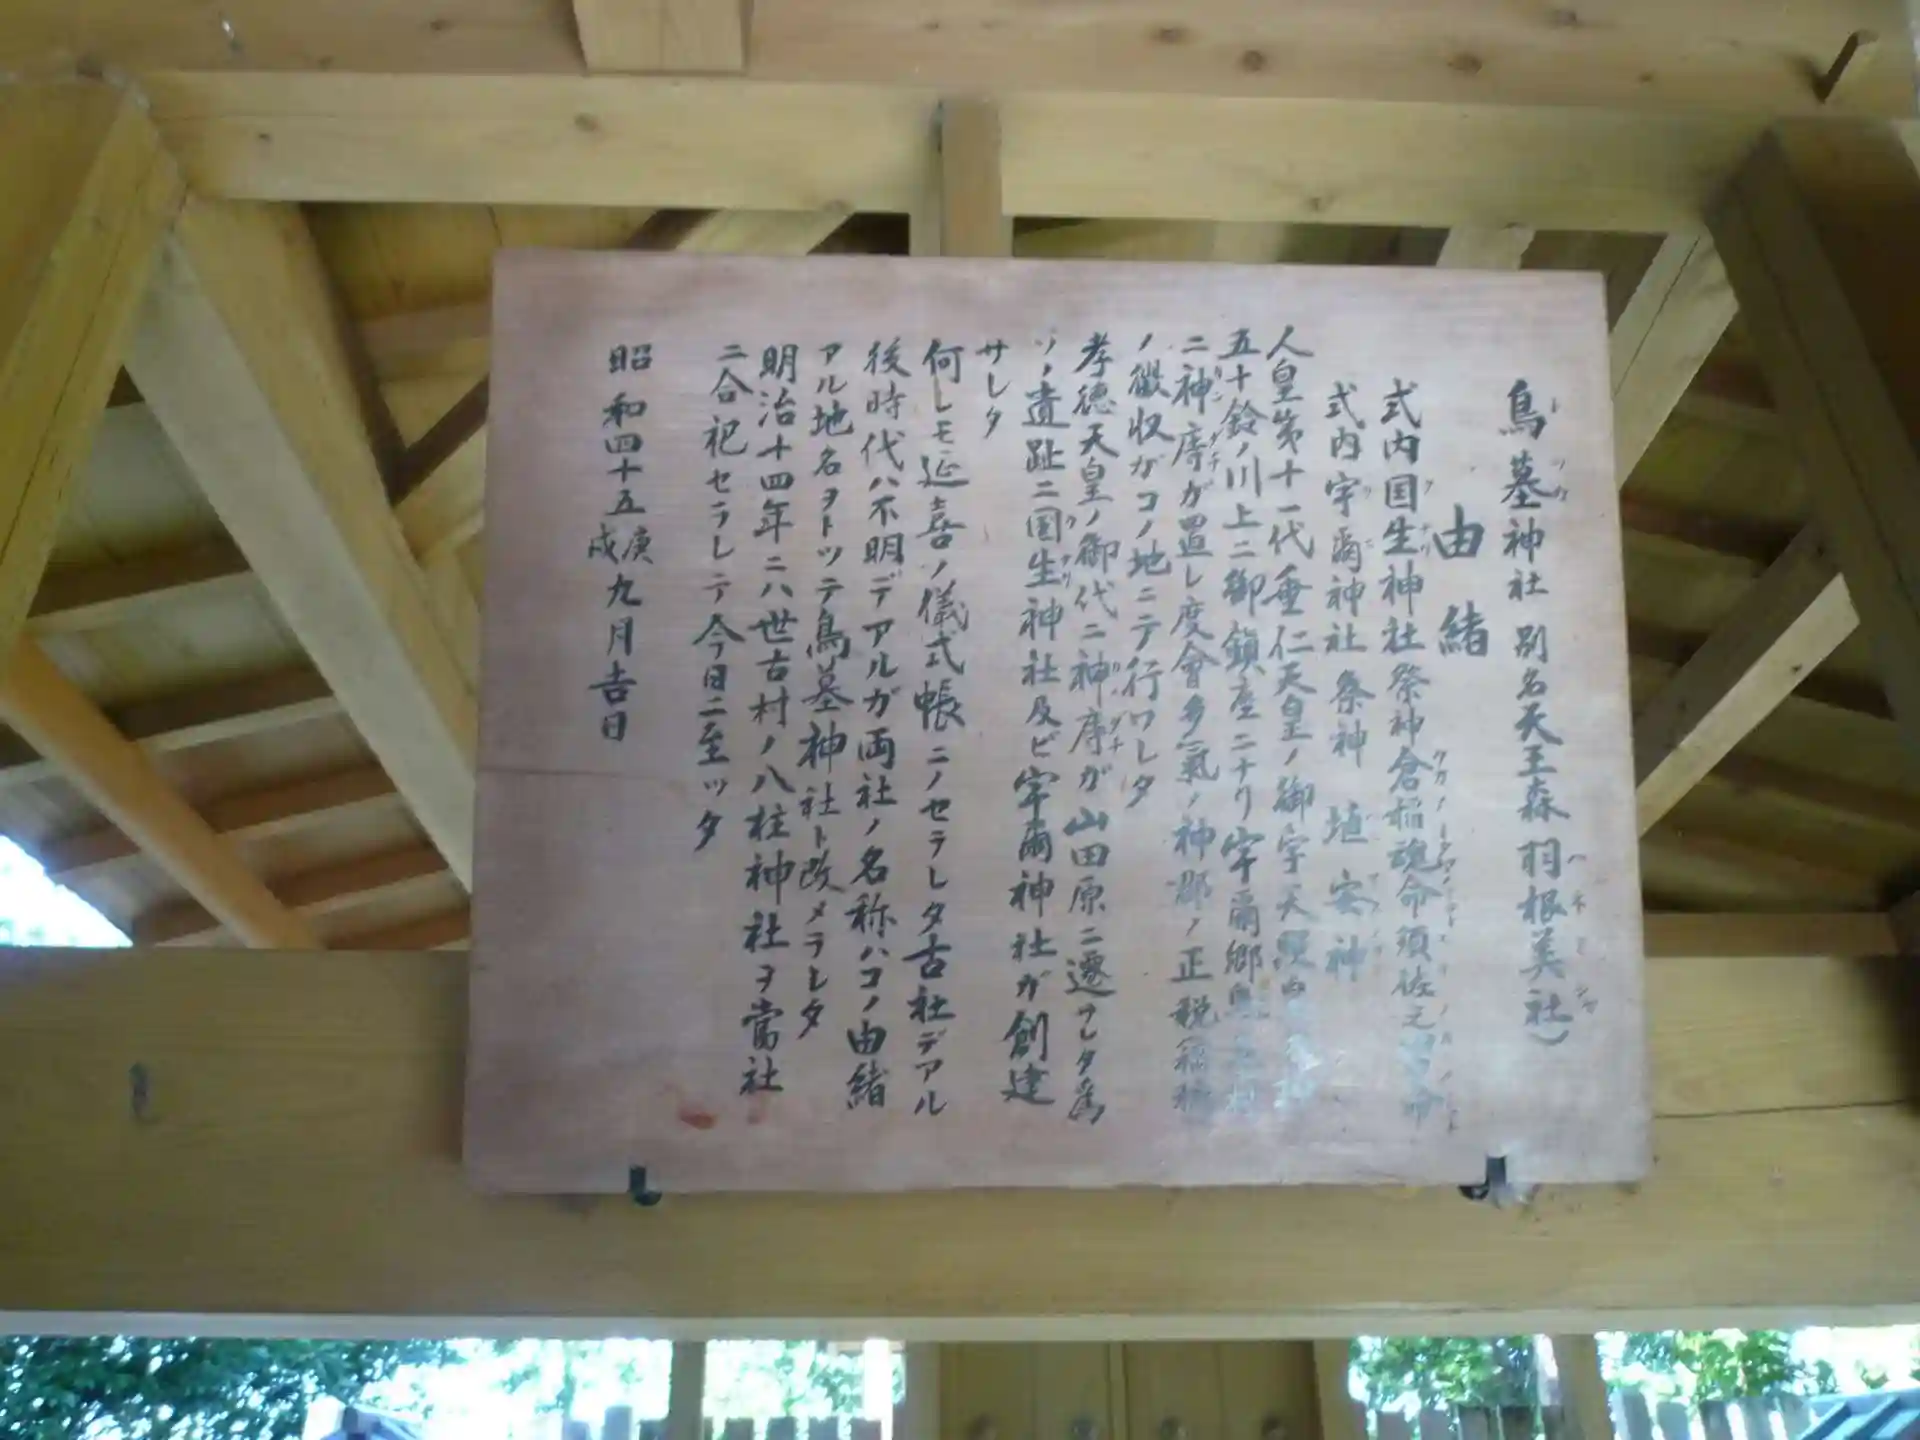 鳥墓神社 別名天王森羽根美社)
由緒
式内国生神社 祭神 倉稲魂命 須佐之男命
式内宇爾神社 祭神 埴安神
人皇第十一代垂仁天皇ノ御宇天照
五十鈴ノ川上ニ御鎮座ニナリ宇爾郷鳥墓村
ニ神庤ガ置レ度會多氣ノ神郡ノ正税
ノ徴収ガコノ地ニテ行ワレタ
孝徳天皇ノ御代ニ神庤ガ山田原ニ遷サレタ為
ソノ遺趾ニ国生神社及ビ宇爾神社ガ創建
サレタ
何レモ延喜ノ儀式帳ニノセラレタ古社デアル
後時代ハ不明デアルガ両社ノ名称ハコノ由緒
アル地名ヲトツテ鳥墓神社ト改メラレタ
明治十四年ニハ世古村ノ八柱神社ヲ當社
ニ合祀セラレテ今日ニ至ツタ
昭和四十五庚戌九月吉日